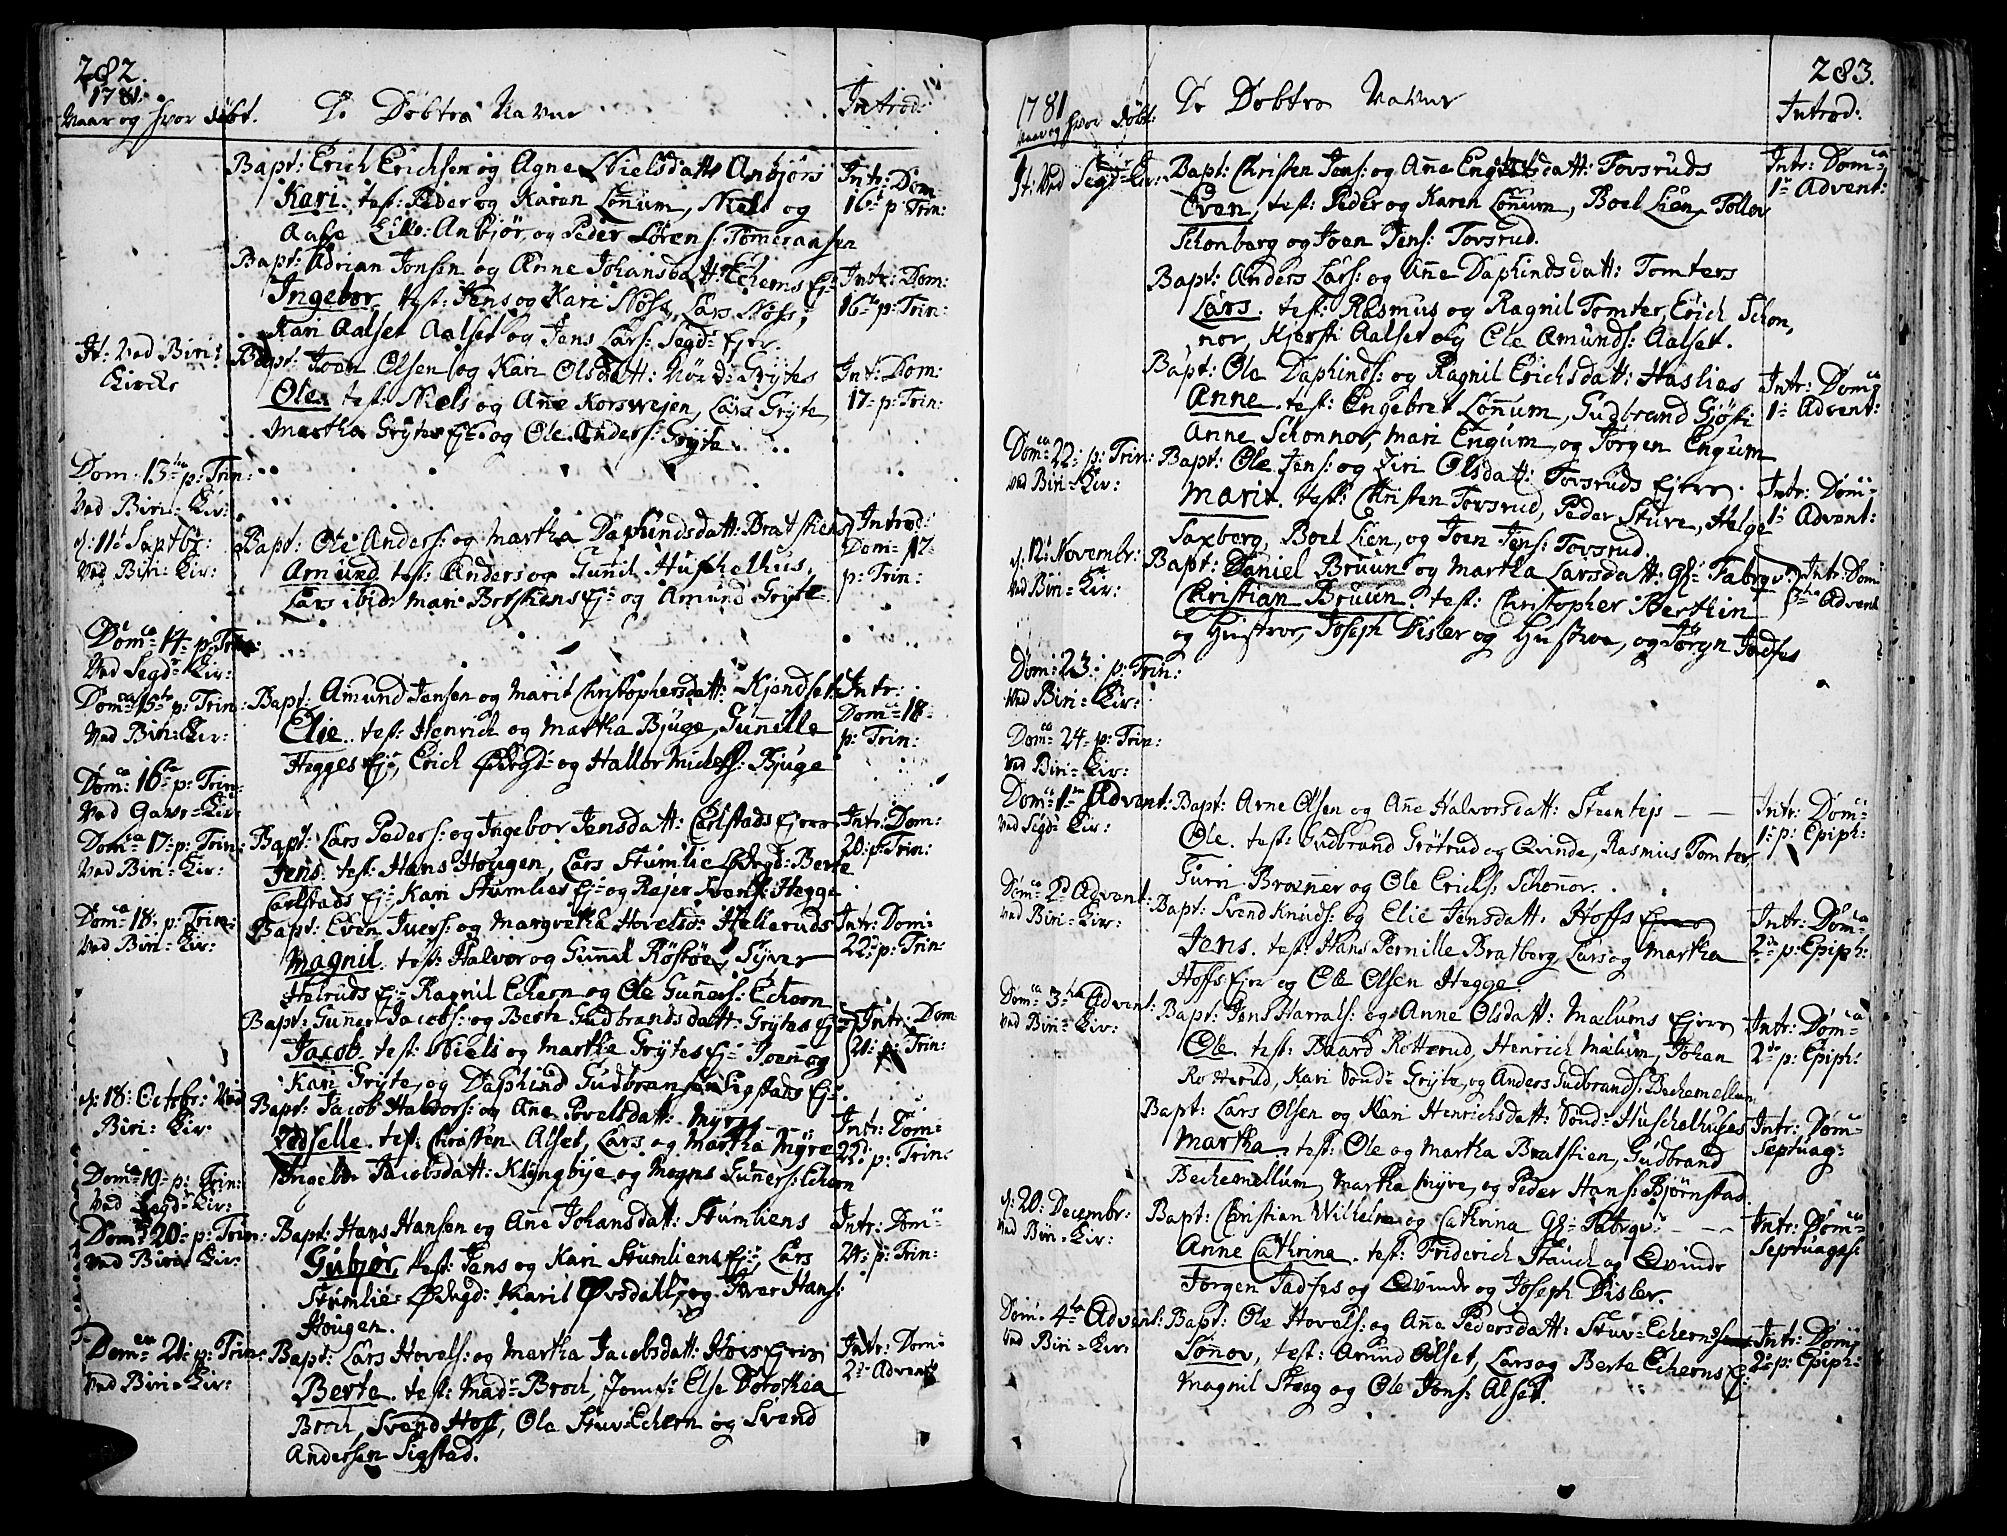 282.
1781.
Naar og hvor døbt. De Døbtes Navne Introd:
Bapt: Erich Erichsen og Agne Nielsdatt: Anbjørs Intr: Dom:
Kari. test: Peder og Karen Lønum, Niels og 16 p: Trin:
Aase Lille: Anbjør, og Peder Sørens: Tømeraasen
Bapt: Adrian Jonsen og Anne Johansdatt: Echerns Ej: Intr: Dom:
Ingebor. test: Jens og Kari Skøss, Lars Skøss, 16 p: Trin:
Kari Aalset Aalset og Jens Lars: Segd: Ejer.
It: Ved Biri: Bapt: Joen Olsen og Kari Olsdatt: Nørd: Grytes Int: Dom:
Kircke Ole. test: Niels og Anne Korsvejen, Lars Gryte, 17 p: Trin:
Martha Grytes Ej: og Ole Anders: Gryte.
Dom: 13 p: Trin:
Ved Biri: Kir:
d: 11 Septbr: Bapt: Ole Anders: og Martha Daphindsdatt: Bratstiens Introd:
Ved Biri: Kir: Amund test: Anders og Gunil Huschelhus, Dom: 17
Lars ibid: Mari Bratstiens Ej: og Amund Gryte p: Trin:
Dom: 14 p: Trin:
Ved Segd: Kir:
Dom: 15 p: Trin: Bapt: Amund Jensen og Marit Christophersdatt: Kjendset Intr:
Ved Biri: Kir: Elie. test: Henrich og Martha Bjuge, Gunille Dom: 18
Hegges Ej:, Erich Ødegd: og Hallor Michels: Bjuge p: Trin:
Dom: 16 p: Trin:
Ved Biri: Kir:
Dom: 17 p: Trin: Bapt: Lars Peders: og Ingebor Jensdatt: Carlstads Ejere Intr: Dom:
Ved Biri: Kir: Jens. test: Hans Hougen, Lars Stumlie Ødegd: Berte 20 p: Trin:
Carlstads Ej: Kari Stumlies Ej: og Rejer Svens: Hegge
Dom: 18 p: Trin: Bapt: Even Ivers: og Margretha Hovelsd: Helleruds Intr: Dom:
Ved Biri: Kir: Magnil. test: Halvor og Gunil Røstøe, Syver 22 p: Trin:
Helruds Ej: Ragnil Echern og Ole Gunners: Echern
Bapt: Gunner Jacobs: og Berte Gudbrandsdatt: Grytes Ej: Intr: Dom
Jacob. test: Niels og Martha Grytes Ej: Joen og 21 p: Trin:
Kari Gryte, og Daphind Gudbransen Sigstads Ej:
d: 18: Octobr: Ved Bapt: Jacob Halvors: og Ane Povelsdatt: Myre Intr: Dom:
Biri: Kir: test: Christen Alset, Lars og Martha Myre 22 p: Trin:
Ingebor Jacobsdatt: Klyngbye og Mogns Gunners: Echern
Dom: 19 p: Trin:
Ved Segd: Kir:
Dom: 20 p: Trin: Bapt: Hans Hansen og Ane Johansdatt: Stumliens Intr: Dom:
Ved Biri: Kir: Gubjør. test: Jens og Kari Stumliens Ej: Lars 24 p: Trin:
Stumlie: Ødegd: Karil Øvsdatt:, og Iver Hans:
Hougen.
Dom: 21 p: Trin: Bapt: Lars Hovels: og Martha Jacobsdatt: Hovs Ejere Intr: Dom:
Ved Biri: Kir: Berte. test: Mad: Broch, Jomf: Else Dorothea 2 Advent:
Broch, Svend Hoff, Ole Stuv=Echern og Svend
Andersen Sigstad.
283.
1781 De Døbtes Navne Introd:
Naar og hvor døbt:
It: Ved Segd: Kir: Bapt: Christen Jens: og Ane Engebretsdatt: Tovsruds Intr: Dom:
Even, test: Peder og Karen Lønum, Boel Lien, Tollev 1 Advent:
Schonberg og Joen Jens: Tovsrud.
Bapt: Anders Lars: og Ane Daphindsdatt: Tomters
Lars. test: Rasmus og Ragnil Tomter, Erich Schon,
nor, Kjersti Aalset og Ole Amunds: Aalset.
Bapt: Ole Daphinds: og Ragnil Erichsdatt: Haslies Intr: Dom:
Anne. test: Engebret Lønum, Gudbrand Gjøsti 1 Advent:
Anne Schonnor, Mari Engum, og Jørgen Engum
Dom: 22 p: Trin: Bapt: Ole Jens: og Siri Olsdatt: Tovsruds Ejere. Intr: Dom:
Ved Biri: Kir: Marit. test: Christen Tovsrud, Peder Sture, Helge 1 Advent:
Saxberg, Boel Lien, og Joen Jens: Tovsrud.
d: 12 Novembr: Bapt: Daniel Bruun og Martha Larsdatt: Gl: Fabrqv: Intr: Dom:
Ved Biri: Kir: Christian Bruun. test: Christopher Berthin 3 Advent
og Hustroe, Joseph Disler og Hustroe, og Jørgn Jadfes
Dom: 23 p: Trin:
Ved Biri: Kir:
Dom: 24 p: Trin:
Ved Biri: Kir:
Dom: 1 Advent: Bapt: Arne Olsen og Ane Halvorsdatt: Steentejs Intr: Dom:
Ved Segd: Kir: Ole. test: Gudbrand Grøtrud og Qvinde, Rasmus Tomter, 1 p: Epiph:
Guri Brønner og Ole Erichs: Schonnor.
Dom: 2 Advent: Bapt: Svend Knuds: og Elie Jensdatt: Hoffs Ejere Intr: Dom:
Ved Biri: Kir: Jens. test: Hans Pernille Bratberg, Lars og Martha 2 p: Epiph:
Hoffs Ejer og Ole Olsen Hegge.
Dom: 3 Advent: Bapt: Jens Harrals: og Anne Olsdatt: Mælums Ejere Intr: Dom:
Ved Biri: Kir: Ole. test: Baard Rotterud, Henrich Mælum, Johan 2 p: Epiph:
Rotterud, Kari Sønd: Gryte, og Anders Gudbrands: Bechemellum
Bapt: Lars Olsen og Kari Henrichsdatt: Sønd: Huschelhuses Intr: Dom:
Martha. test: Ole og Martha Bratstien, Gudbrand Septuag:
Bechemellum, Martha Myre, og Peder Hans: Bjørnstad
d: 20: Decembr: Bapt: Christian Wilhelm og Cathrina Gl: Fabrqv: Intr: Dom:
Ved Biri: Kir: Anne Cathrina. test: Friderich Stauch og Qvinde Septuages:
Jørgen Jadfes og Qvinde og Joseph Disler.
Dom: 4 Advent: Bapt: Ole Hovels: og Ane Pedersdatt: Stuv=Echerns Intr: Dom:
Ved Biri: Kir: Sønov, test: Amund Alset, Lars og Berte Echerns Ej: 2 p: Epiph:
Magnil Skeeg og Ole Jons: Alset.